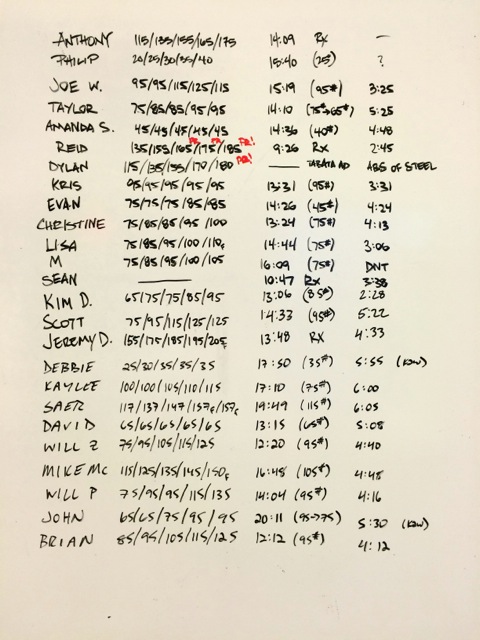 ANTHONY 115/135/155/165/175 14:09 Rx —
PHILIP 20/25/30/35/40 15:40 (25#) ?
JOE W. 95/95/115/125/115 15:19 (95#) 3:25
TAYLOR 75/85/85/95/95 14:10 (75#→65#) 5:25
AMANDA S. 45/45/45/45/45 14:36 (40#) 4:48
REID 135/155/165/175/185 PR PR PR! 9:26 Rx 2:45
DYLAN 115/135/155/170/180 PR! —— TABATA AD ABS OF STEEL
KRIS 95/95/95/95/95 13:31 (95#) 3:31
EVAN 75/75/75/85/85 14:26 (45#) 4:24
CHRISTINE 75/85/85/95/100 13:24 (75#) 4:13
LISA 75/85/95/100/110f 14:44 (75#) 3:06
M 75/85/95/100/105 16:09 (75#) DNT
SEAN —— 10:47 Rx 3:38
KIM D. 65/75/75/85/95 13:06 (85#) 2:28
SCOTT 75/95/115/125/125 14:33 (95#) 5:22
JEREMY D. 155/175/185/195/205f 13:48 Rx 4:33
DEBBIE 25/30/35/35/35 17:50 (35#) 5:55 (row)
KAYLEE 100/100/105/110/115 17:10 (75#) 6:00
SAER 117/137/147/157f/157f 19:49 (115#) 6:05
DAVID 65/65/65/65/65 13:15 (65#) 5:08
WILL Z 75/95/105/115/125 12:20 (95#) 4:40
MIKE MC 115/125/135/145/150f 16:48 (105#) 4:48
WILL P 75/95/95/115/135 14:04 (95#) 4:16
JOHN 65/65/75/95/95 20:11 (95→75) 5:30 (row)
BRIAN 85/95/105/115/125 12:12 (95#) 4:12